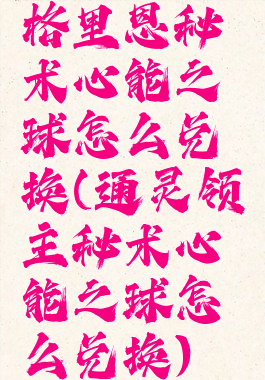 格里恩秘
术心能之
球怎么兑
换(通灵领
主秘术心
能之球怎
么兑换)